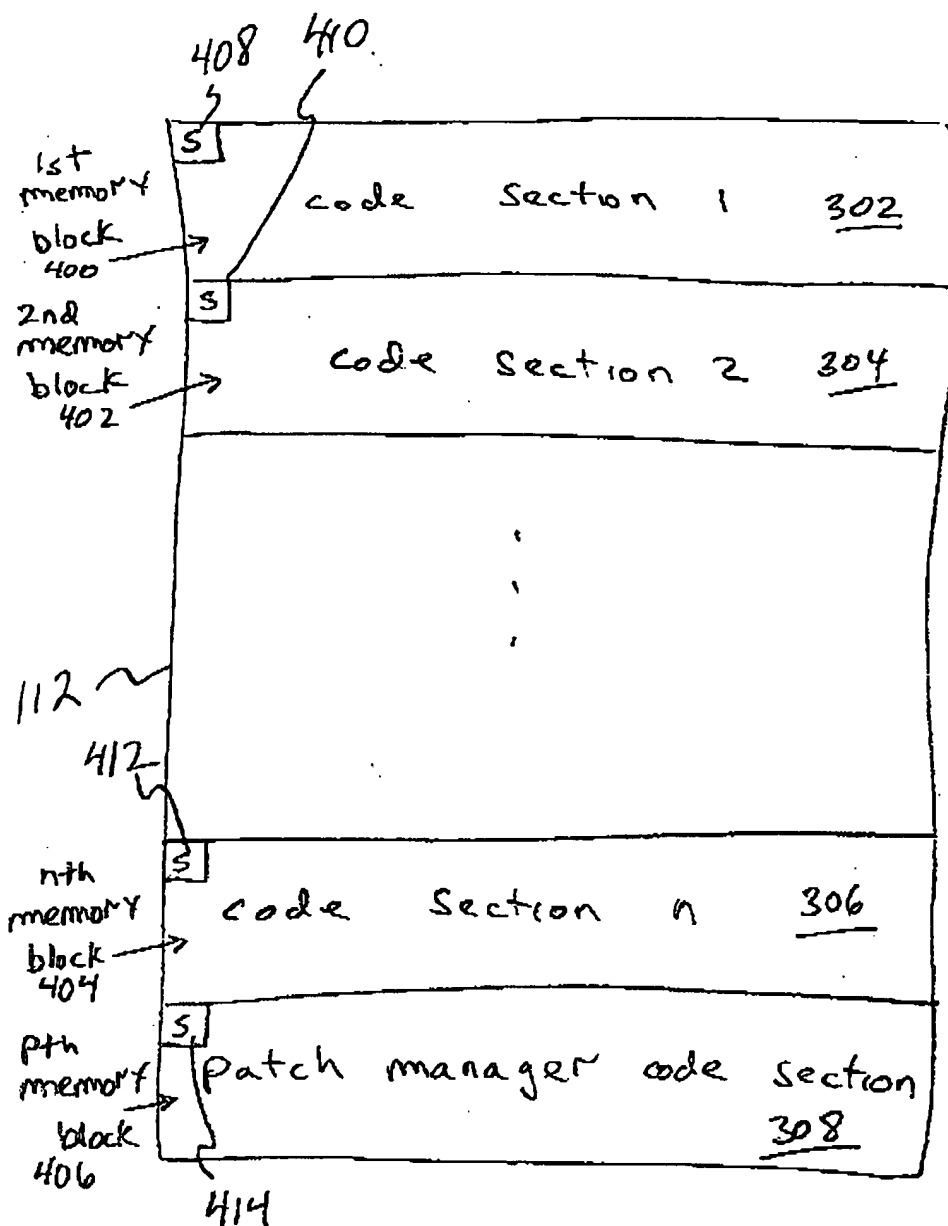 408
410
S
1st
memory
block
400
code section 1 302
S
2nd
memory
block
402
code section 2 304
112
412
S
nth
memory
block
404
code section n 306
S
pth
memory
block
406
patch manager code section
308
414